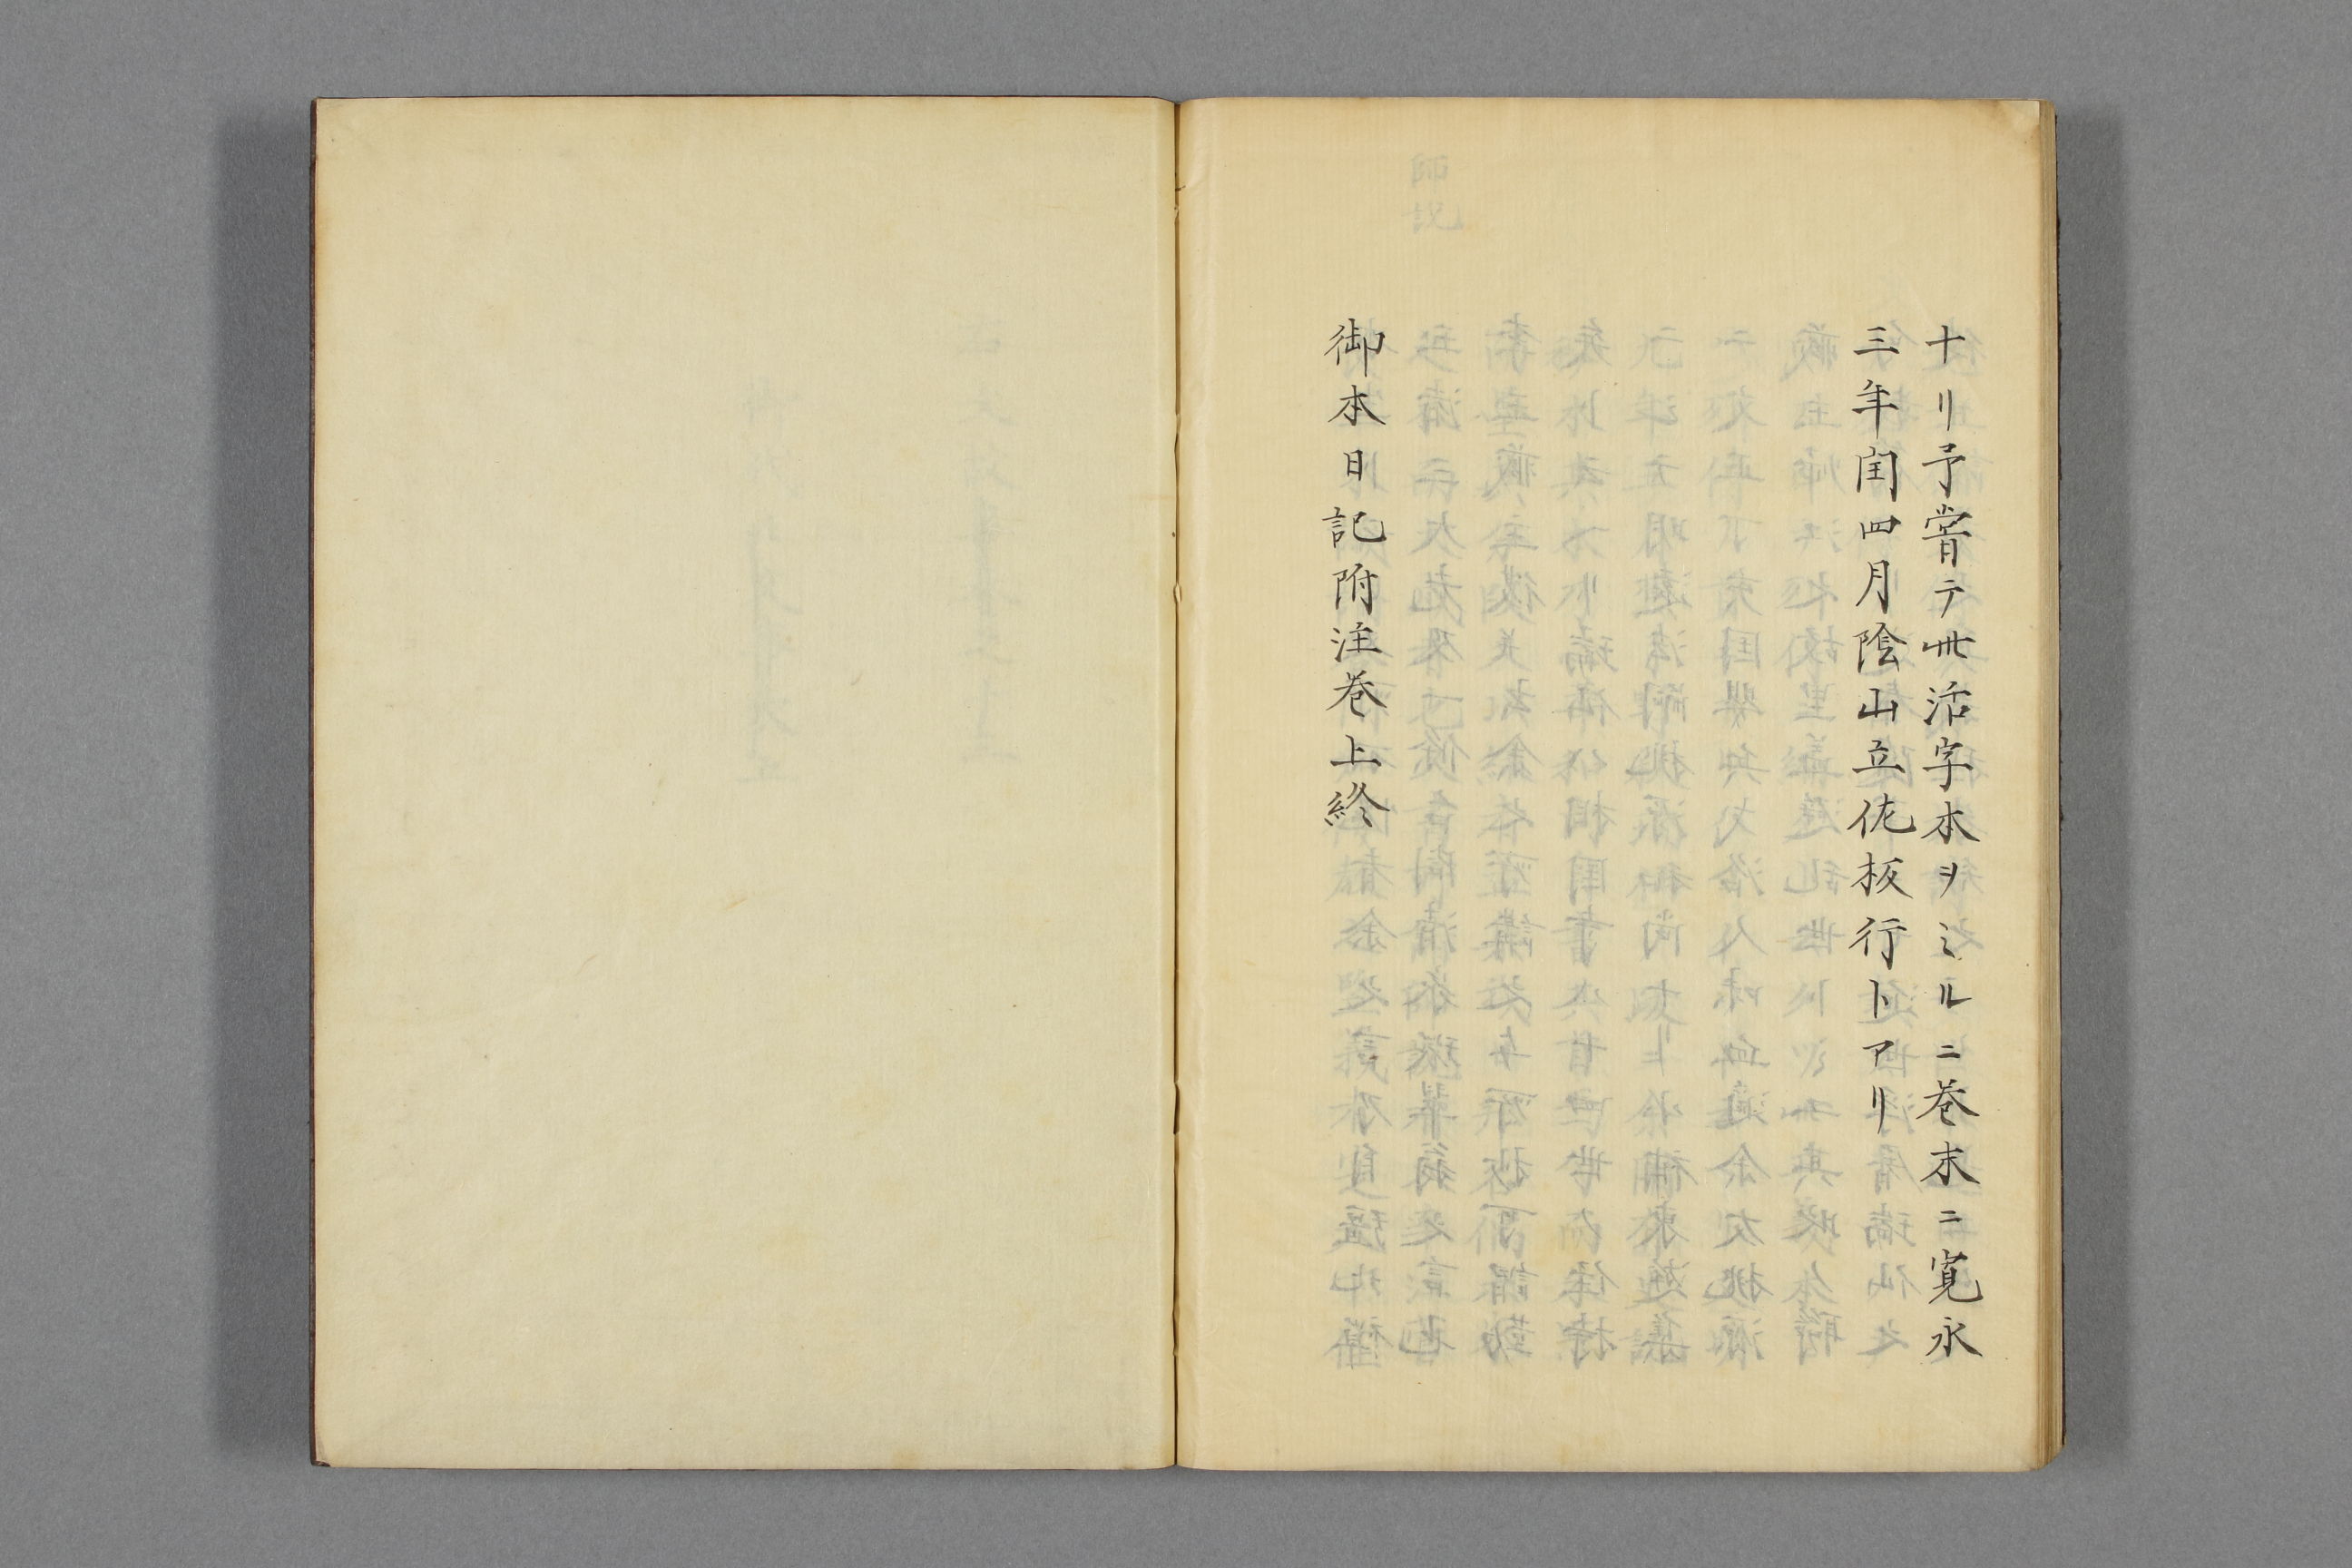 ナリ予甞テ此活字本ヲミルニ巻末ニ寛永
三年閏四月陰山立佐板行トアリ
御本日記附注巻上終